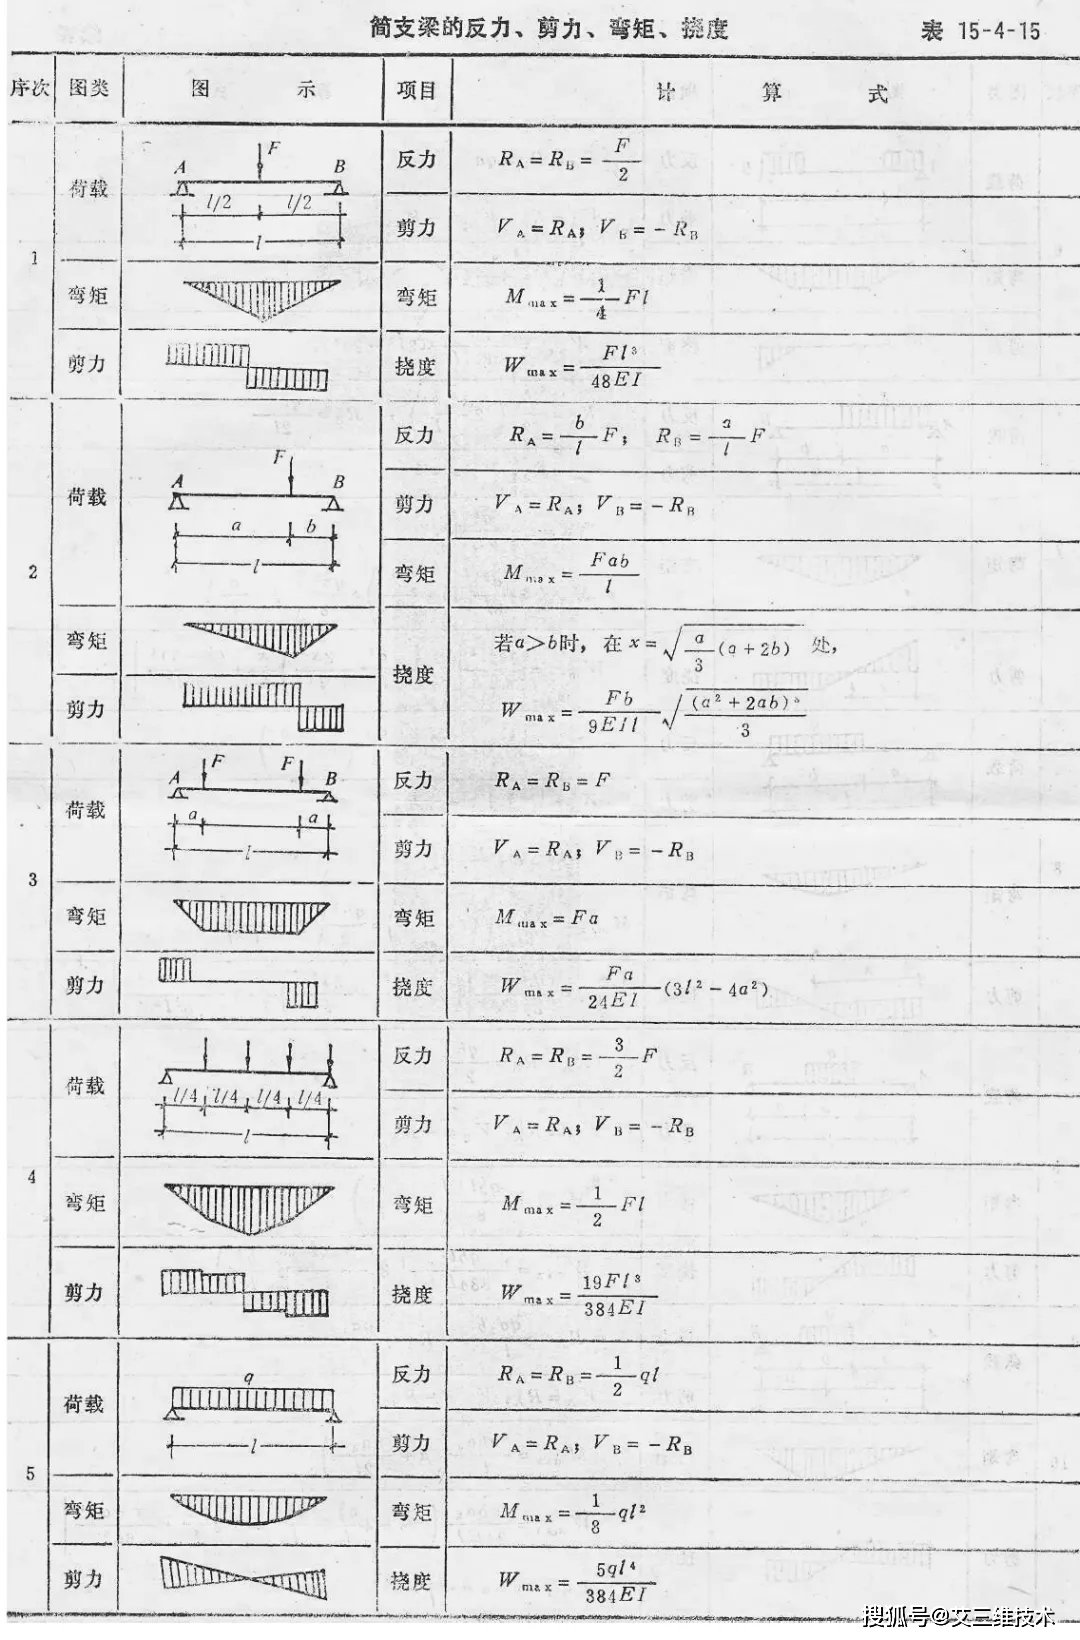 简支梁的反力、剪力、弯矩、挠度 表 15-4-15
序次 图类 图 示 项目 计 算 式
1
荷载
F
A B
l/2 l/2
l
弯矩
剪力
反力 R_A = R_B = F/2
剪力 V_A = R_A; V_B = - R_B
弯矩 M_max = 1/4 Fl
挠度 W_max = Fl³/48EI
2
荷载
F
A B
a b
l
弯矩
剪力
反力 R_A = b/l F; R_B = a/l F
剪力 V_A = R_A; V_B = - R_B
弯矩 M_max = Fab/l
挠度 若a>b时, 在 x = √(a/3 (a + 2b)) 处,
W_max = Fb/9EIl √((a² + 2ab)³/3)
3
荷载
F F
A B
a a
l
弯矩
剪力
反力 R_A = R_B = F
剪力 V_A = R_A; V_B = - R_B
弯矩 M_max = Fa
挠度 W_max = Fa/24EI (3l² - 4a²)
4
荷载
l/4 l/4 l/4 l/4
l
弯矩
剪力
反力 R_A = R_B = 3/2 F
剪力 V_A = R_A; V_B = - R_B
弯矩 M_max = 1/2 Fl
挠度 W_max = 19Fl³/384EI
5
荷载
q
l
弯矩
剪力
反力 R_A = R_B = 1/2 ql
剪力 V_A = R_A; V_B = - R_B
弯矩 M_max = 1/8 ql²
挠度 W_max = 5ql⁴/384EI
搜狐号@艾三维技术